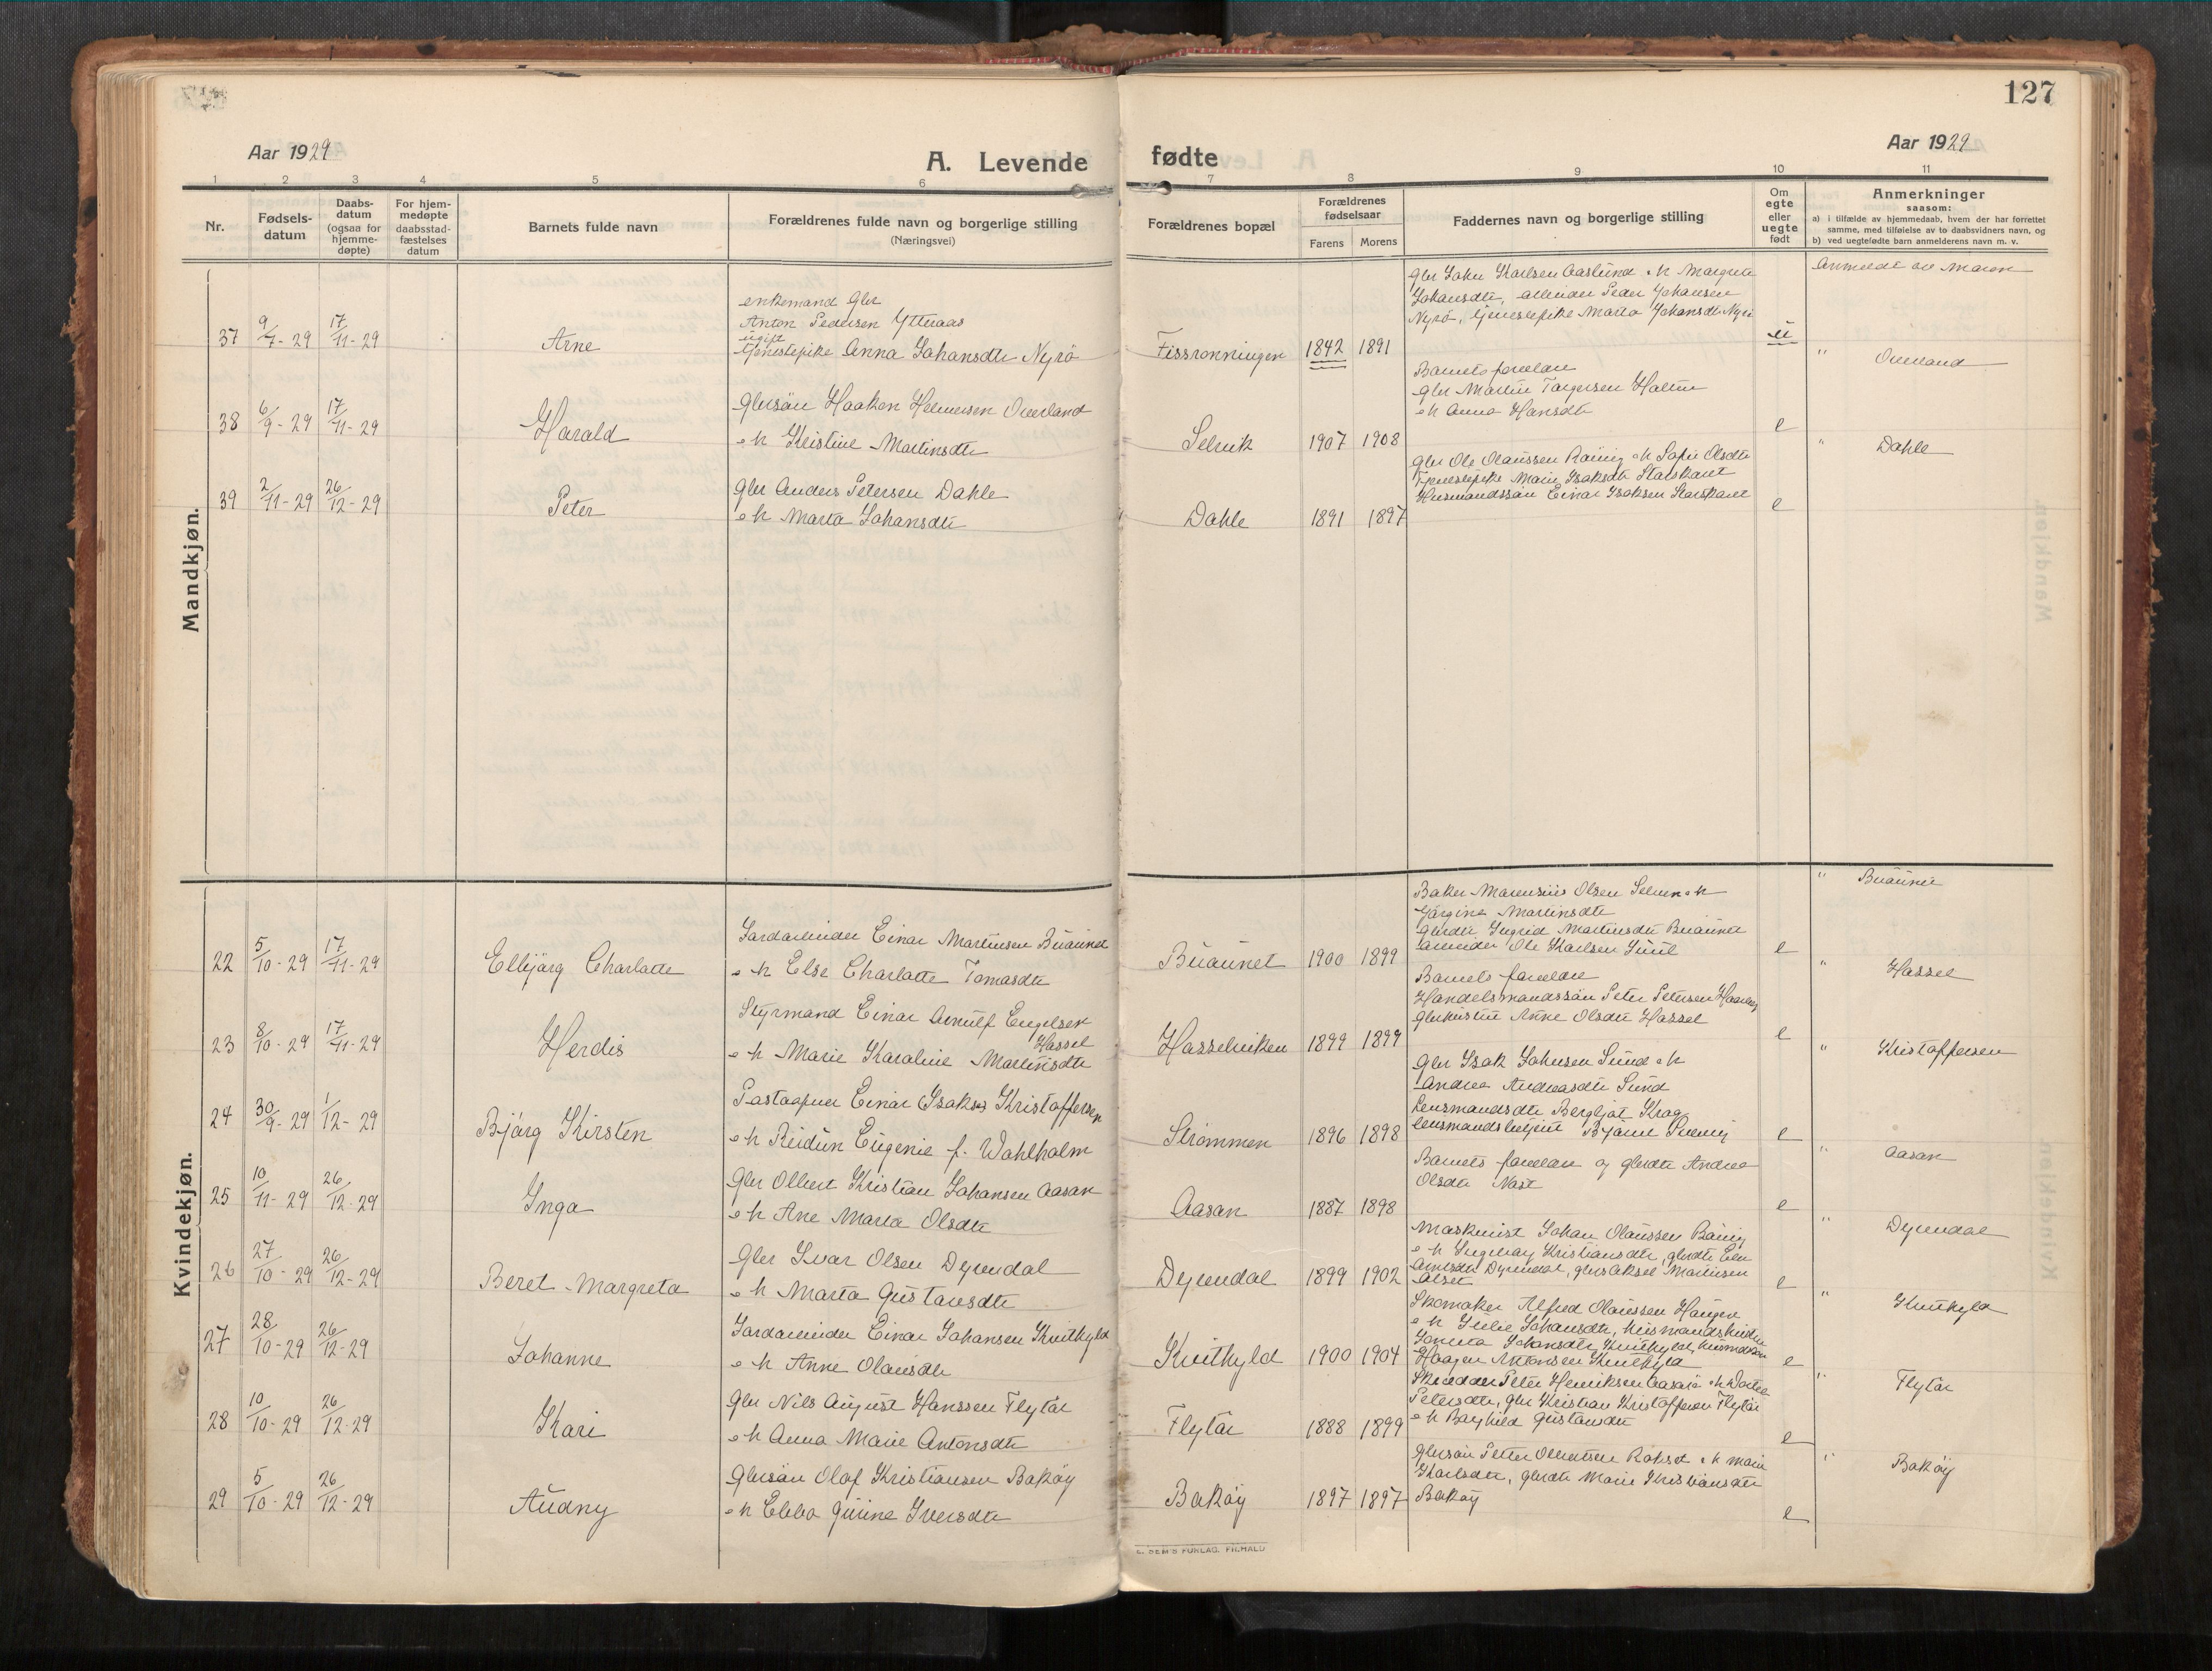 127
Aar 1929
A. Levende fødte
Aar 1929
1 2 3 4 5 6 7 8 9 10 11
Nr.
Fødsels-
datum
Daabs-
datum
(ogsaa for
hjemme-
døpte)
For hjem-
medøpte
daabsstad-
fæstelses
datum
Barnets fulde navn
Forældrenes fulde navn og borgerlige stilling
(Næringsvei)
Forældrenes bopæl
Forældrenes
fødselsaar
Farens Morens
Faddernes navn og borgerlige stilling
Om
egte
eller
uegte
født
Anmerkninger
saasom:
a) i tilfælde av hjemmedaab, hvem der har forrettet
samme, med tilføielse av to daabsvidners navn, og
b) ved uegtefødte barn anmelderens navn m. v.
Mandkjøn.
37 9/7-29 17/11-29
Arne
enkemand Gbr
Anton Pedersen Ytteraas
ugift
tjenestepike Anna Johansdtr Nyrö
Fissronningen 1842 1891
Gbr John Karlsen Aaslund o h Margrete
Johansdtr, arbeider Peder Johansen
Nyrö, tjenestepike Marta Johansdtr Nyrö
u
Anmeldt av Moren
38 6/9-29 17/11-29
Harald
Gbrsön Haakon Helmersen Overland
o h Kristine Martinsdtr
Selvik 1907 1908
Barnets forældre
Gbr Martin Torgersen
o h Anna Hansdtr
e
" Overland
39 2/11-29 26/12-29
Peter
Gbr Anders Petersen Dahle
o h Marta Johansdtr
Dahle 1891 1897
Gbr Ole Olaussen Röning o h Sofie Olsdtr
Tjenestepike Marie Isaksdtr Starskaret
Husmandssön Einar Isaksen Starskaret
e
" Dahle
Kvindekjøn.
22 5/10-29 17/11-29
Elbjörg Charlotte
Jordarbeider Einar Martinsen Buaunet
o h Else Charlotte Tomasdtr
Buaunet 1900 1899
Baker Marensius Olsen Selven o h
Jörgine Martinsdtr
Gbrdtr Ingrid Martinsdtr Buaunet
arbeider Ole Karlsen
e
" Buaunet
23 8/10-29 17/11-29
Herdis
Styrmand Einar Arnulf Engelsen
Hassel
o h Marie Karoline Martinsdtr
Hasselviken 1899 1899
Barnets forældre
Handelsmandssön Peter Petersen
Gbrkusine Anne Olsdtr Hassel
e
" Hassel
24 30/9-29 1/12-29
Bjørg Kirsten
Postaapner Einar (Isaksen) Kristoffersen
o h Reidun Eugenie f. Wahlholm
Strømmen 1896 1898
Gbr Isak Johnsen Sund o h
Andrea Andreasdtr Sund
Lensmandsdtr Bergljot Krag
lensmandsbetjent Bjarne
e
" Kristoffersen
25 10/11-29 26/12-29
Inga
Gbr Olbert Kristian Johansen Aasan
o h Ane Marta Olsdtr
Aasan 1887 1898
Barnets forældre og gbrdtr Andrea
Olsdtr Nast
e
" Aasan
26 27/10-29 26/12-29
Beret Margreta
Gbr Ivar Olsen Dyrendal
o h Marta Gustavsdtr
Dyrendal 1899 1902
Maskinist Johan Olaussen Röning
o h Ingebory Kristiansdtr, gbrdtr Elen
Arntsdtr Dyrendal, gbrs Aksel Martinsen
Alset
e
" Dyrendal
27 28/10-29 26/12-29
Johanne
Jordarbeider Einar Johansen Kvithyld
o h Anne Olausdtr
Kvithyld 1900 1904
Skomaker Alfred Olaussen Haugen
o h Julie Johansdtr, husmandskvinde
Johansdtr Kvithyld, husmdssön
Haagen Antonsen Kvithyld
e
" Kvithyld
28 10/10-29 26/12-29
Kari
Gbr Nils August Hanssen Flytör
o h Anna Marie Antonsdtr
Flytör 1888 1899
Skrædder Peter Henriksen Aasarö o h Dortea
Petersdtr, gbr Kristian Kristoffersen Flytör
o h Boghild Gustavsdtr
e
" Flytör
29 5/10-29 26/12-29
Audny
Gbrsön Olof Kristiansen Baköy
o h Ebba Gurine Iversdtr
Baköy 1897 1897
Gbrsön Peter Olbertsen Rokset o h Marie
Karlsdtr, gbrdtr Marie Kristiansdtr
Baköy
e
" Baköy
E. SEM'S FORLAG. FR.HALD